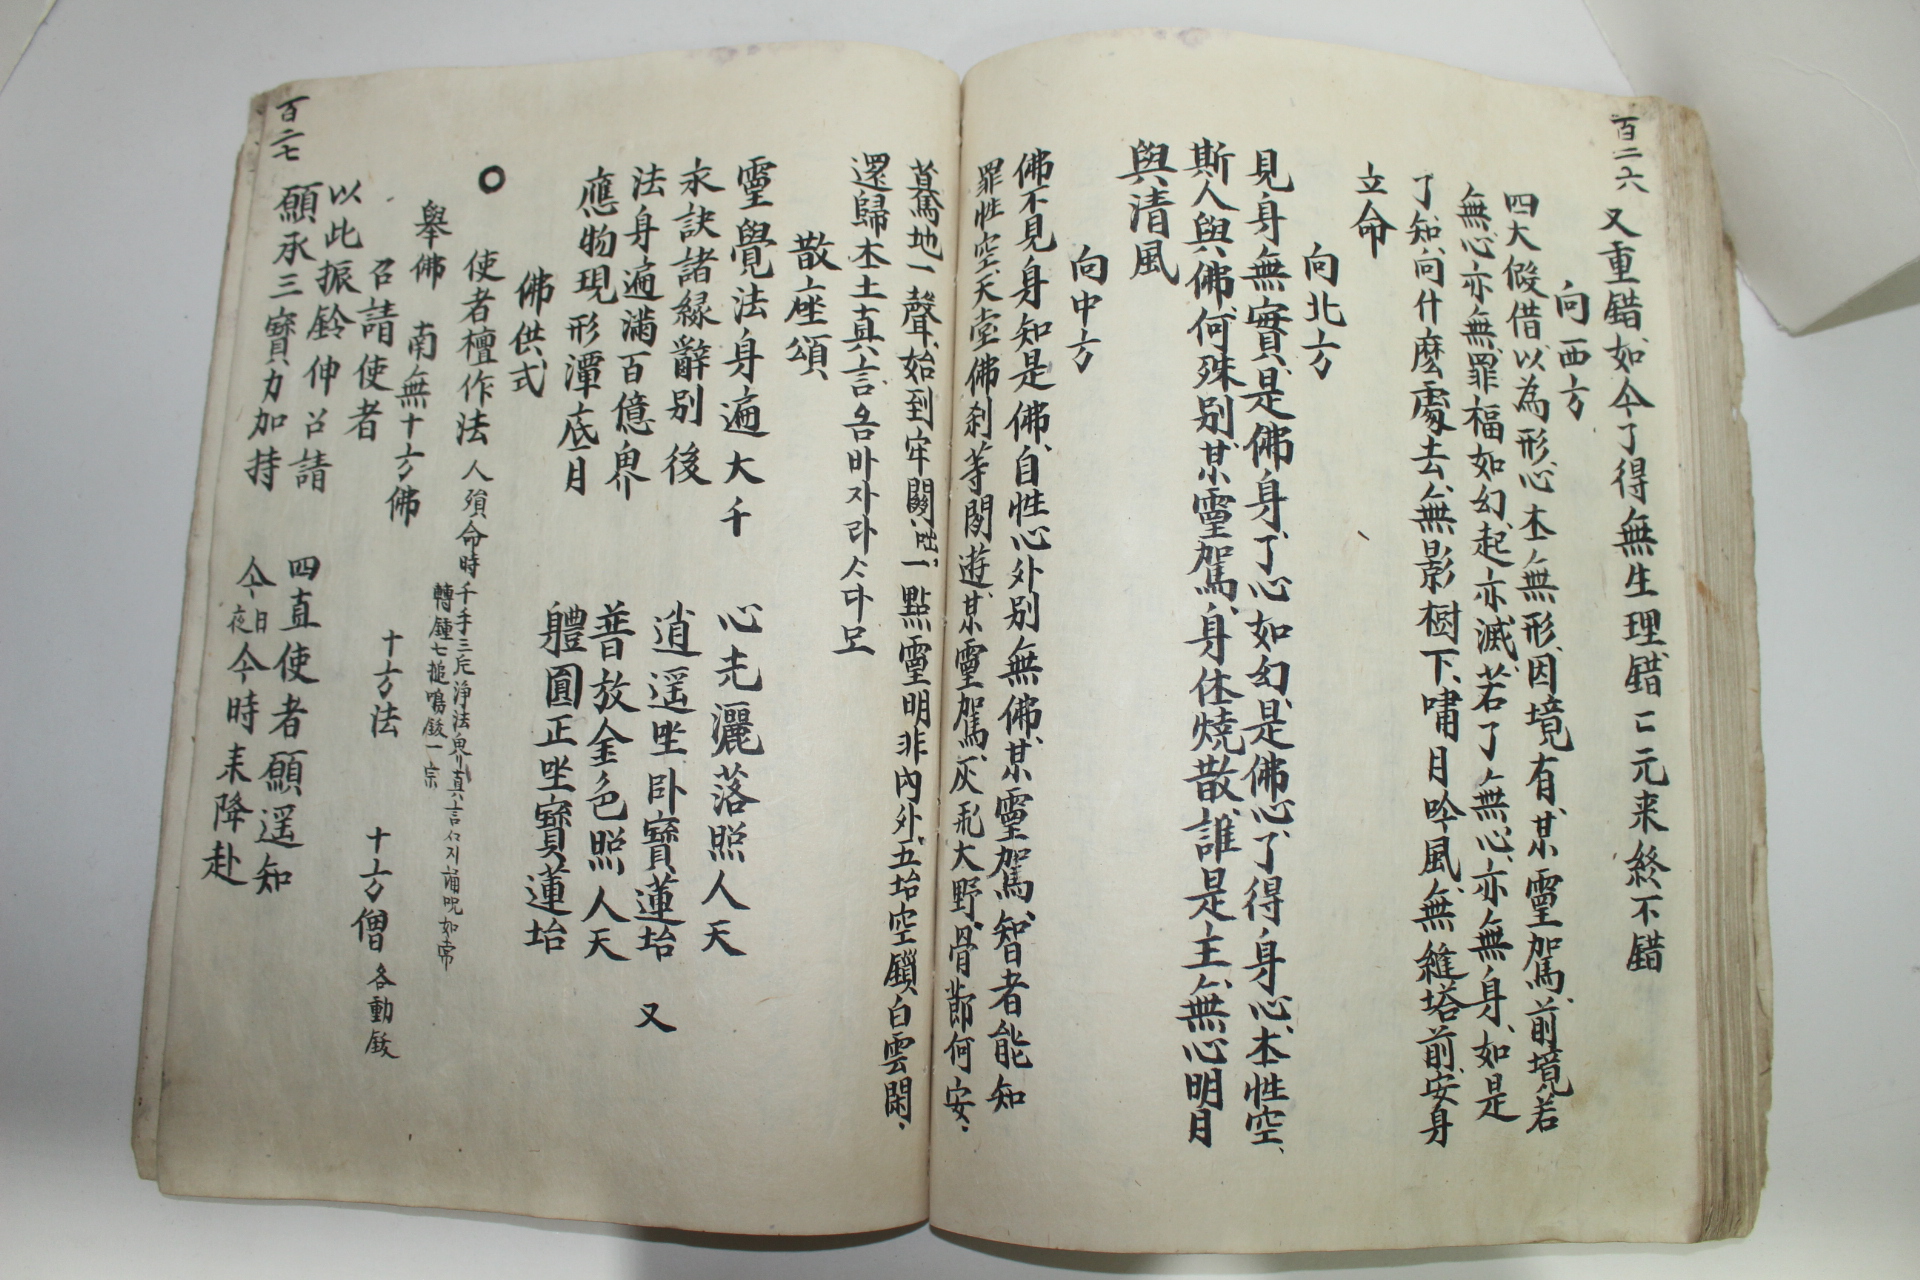 百二六
又重錯如今了得無生理錯〻元来終不錯
向西方
四大假借以為形心本無形因境有某靈駕前境若
無心亦無罪福如幻起亦滅若了無心亦無身如是
了知向什麽處去無影樹下嘯月吟風無縫塔前安身
立命
向北方
見身無實是佛身了心如幻是佛心了得身心本性空
斯人與佛何殊別某靈駕身体燒散誰是主無心明月
與清風
向中方
佛不見身知是佛自性心外別無佛某靈駕智者能知
罪性空天堂佛刹等閑遊某靈駕灰飛大野骨節何安
驀地一聲始到牢關咄一點靈明非內外五坮空鎖白雲閑
還歸本土真言 옴바자라사다모
散座頌
靈覺法身遍大千 心光灑落照人天
永訣諸緣辭別後 逍遥坐卧寶蓮坮 又
法身遍滿百億界 普放金色照人天
應物現形潭底月 軆圓正坐寶蓮坮
佛供式
○ 使者檀作法 人殞命時 千手三片淨法界真言 誦呪如常
轉鍾七搥鳴鈸一宗
擧佛 南無十方佛 十方法 十方僧 各動鈸
召請使者
以此振鈴伸召請 四直使者願遥知
願承三寶力加持 今日夜今時来降赴
百二七